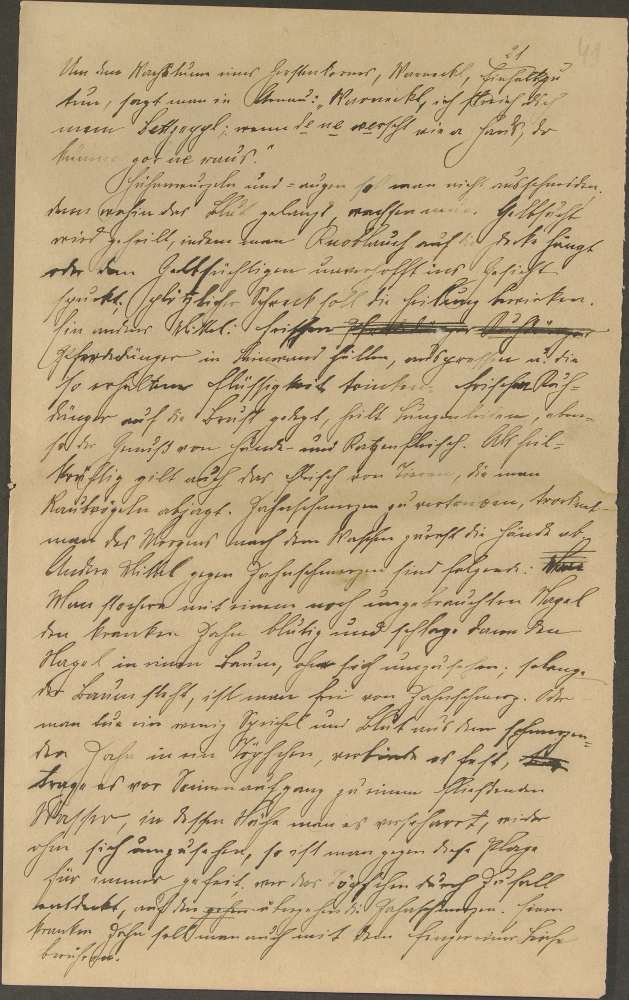 21
41
Um dem Wachstume eines Gerstenkornes, Warneckl, Einhalt zu
tun, sagt man in Arnau: „Warneckl, ich streich dich
mem Bettzoppl; wenn de ne werscht wie a Haus, do
kümme gor ne raus."
Hühnerwurzeln und =augen soll man nicht ausschneiden,
denn wohin das Blut gelangt, wachsen neue. Gelbsucht
wird geheilt, indem man Knoblauch auf die Decke hängt
oder dem Gelbsüchtigen unverhofft ins Gesicht
spuckt. Plötzlicher Schreck soll die Heilung bewirken.
Ein anders Mittel: frischen
Pferdedünger in Leinwand hüllen, auspressen u. die
so erhaltene Flüssigkeit trinken. Frischer Kuh-
dünger auf die Brust gelegt, heilt Lungenleiden, eben-
so der Genuß von Hunde- und Katzenfleisch. Als heil-
kräftig gilt auch das Fleisch von Tieren, die man
Raubvögeln abjagt. Zahnschmerzen zu vertreiben, trocknet
man des Morgens nach dem Waschen zuerst die Hände ab.
Andere Mittel gegen Zahnschmerzen sind folgende:
Man stochere mit einem noch ungebrauchten Nagel
den kranken Zahn blutig und schlage dann den
Nagel in einen Baum, ohne sich umzusehen; solange
der Baum steht, ist man frei von Zahnschmerz. Oder
man tue ein wenig Speichel und Blut aus dem schmerzen-
den Zahn in ein Töpfchen, verbinde es fest,
trage es vor Sonnenaufgang zu einem fließenden
Wasser, in dessen Nähe man es verscharrt, wieder
ohne sich umzusehen, so ist man gegen diese Plage
für immer gefeit. Wer das Töpfchen durch Zufall
entdeckt, auf den gehen über die Zahnschmerzen. Einen
kranken Zahn soll man auch mit dem Finger einer Leiche
berühren.